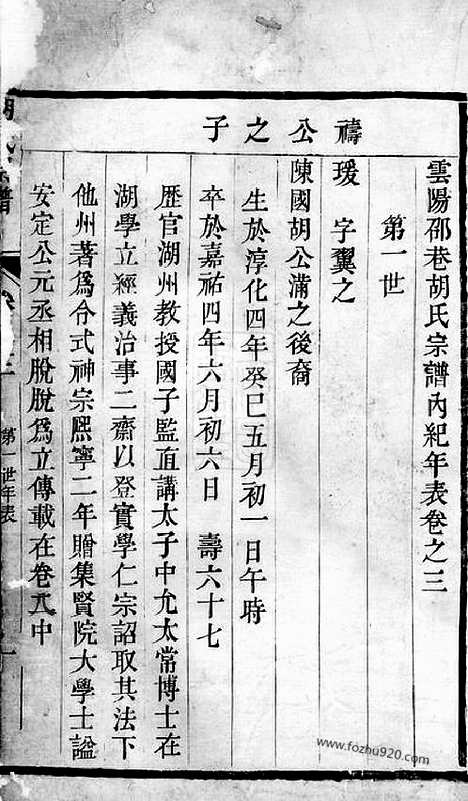 雲陽邵巷胡氏宗譜內紀年表卷之三
第一世
禱公之子
瑗　字翼之
陳國胡公滿之後裔
生於淳化四年癸巳五月初一日午時
卒於嘉祐四年六月初六日　壽六十七
歷官湖州教授國子監直講太子中允太常博士在
湖學立經義治事二齋以登實學仁宗詔取其法下
他州著爲令式神宗熙寧二年贈集賢院大學士謚
安定公元丞相脫脫爲立傳載在卷八中
第一世年表
www.fozhu920.com